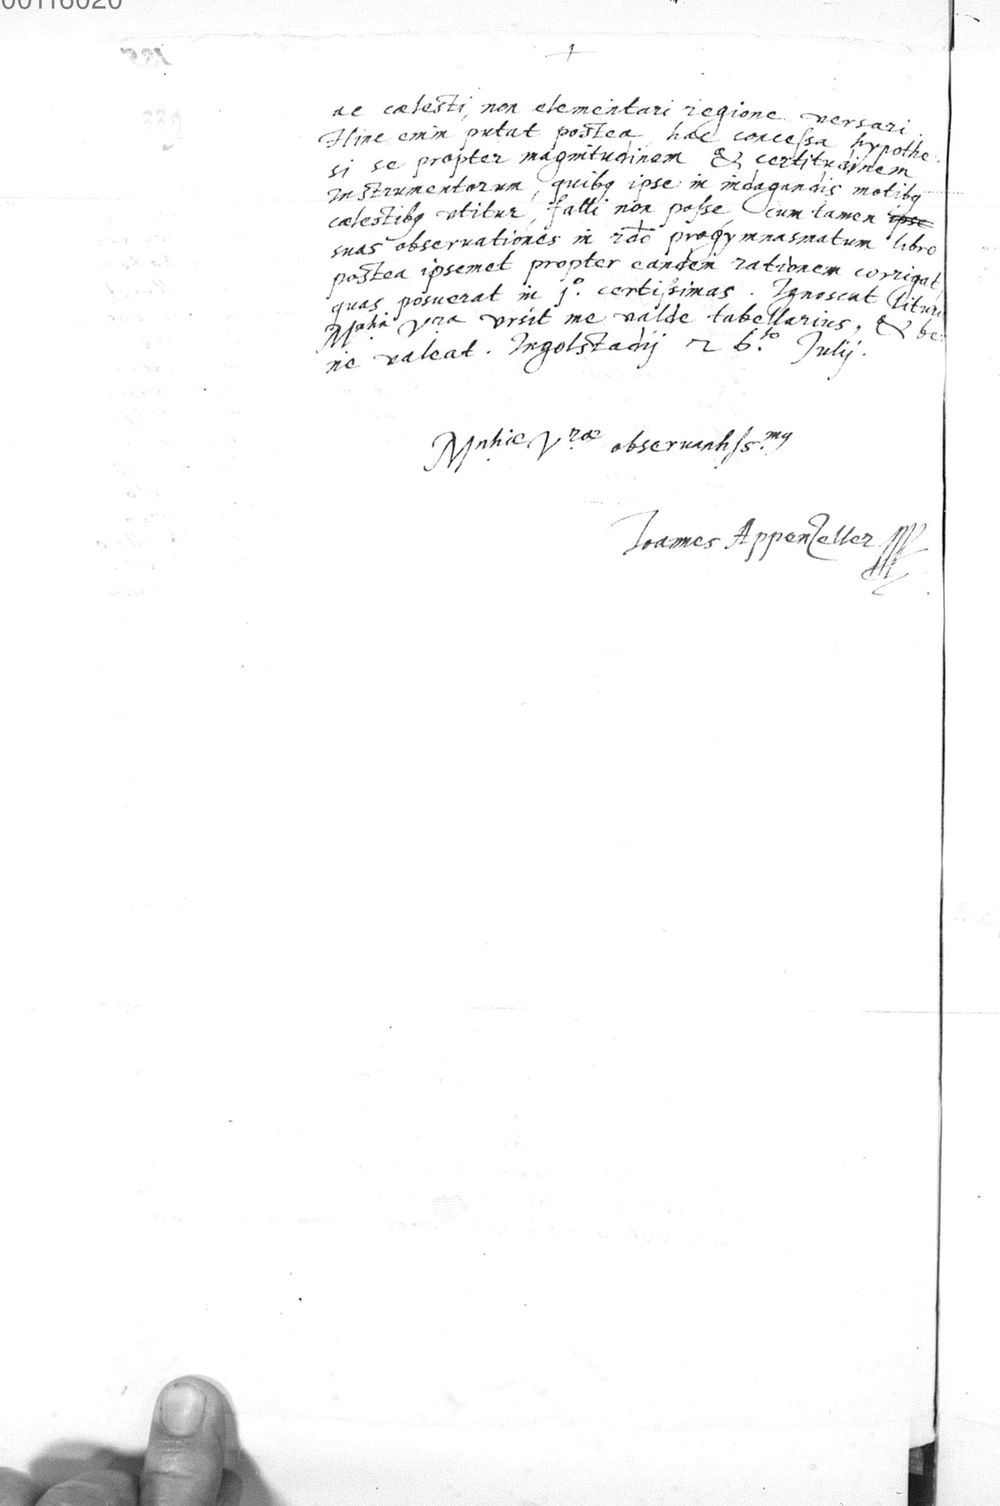 00116020
ac cælesti, non elementari regione versari.
Hinc enim putat postea, hac concessa hypothe-
si se propter magnitudinem & certitudinem
instrumentorum, quibq ipse in indagandis motibq
cælestibq utitur, falli non posse, cum tamen ipse
suas observationes in 2do progymnasmatum libro
postea ipsemet propter eandem rationem corrigat,
quas posuerat in jo. certissimas. Ignoscat
Vra ursit me valde tabellarius, & be-
ne valeat. Ingolstadij 2 6.to Julij.
Vræ observantiss.mq
Joannes Appenzeller